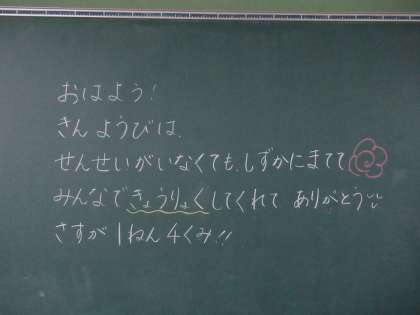 おはよう！
きんようびは、
せんせいがいなくても、しずかにまてて
みんなできょうりょくしてくれて ありがとう
さすが 1ねん4くみ!!